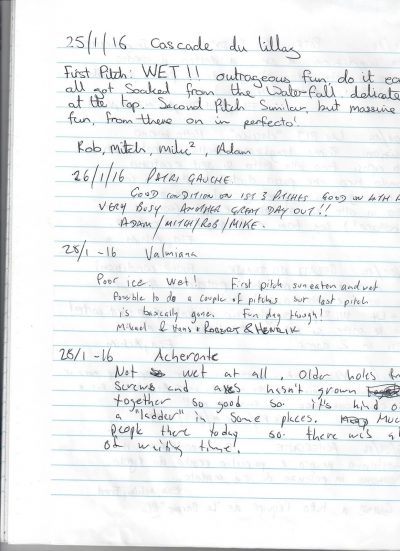 25/1/16 Cascade du Lillaz
First Pitch: WET!! outrageous fun, do it
all got soaked from the Waterfall delicate
at the top. Second Pitch Similar, but massive
fun, from there on in perfecto!
Rob, Mitch, Mike², Adam
26/1/16 PATRI GAUCHE
GOOD CONDITION ON 1ST 3 PITCHES GOOD ON 4TH
VERY BUSY ANOTHER GREAT DAY OUT!!
ADAM / MITCH / ROB / MIKE.
25/1 -16 Valmiana
Poor ice. Wet! First pitch suneaten and wet
Possible to do a couple of pitches but last pitch
is basically gone. Fun day though!
Mikael & Hans + ROBERT & HENRIK
25/1 -16 Acheronte
Not wet at all. Older holes
screws and axes hasn't grown
together so good so it's kind
a "ladder" in some places. Muc
people there today so there was
of waiting time!